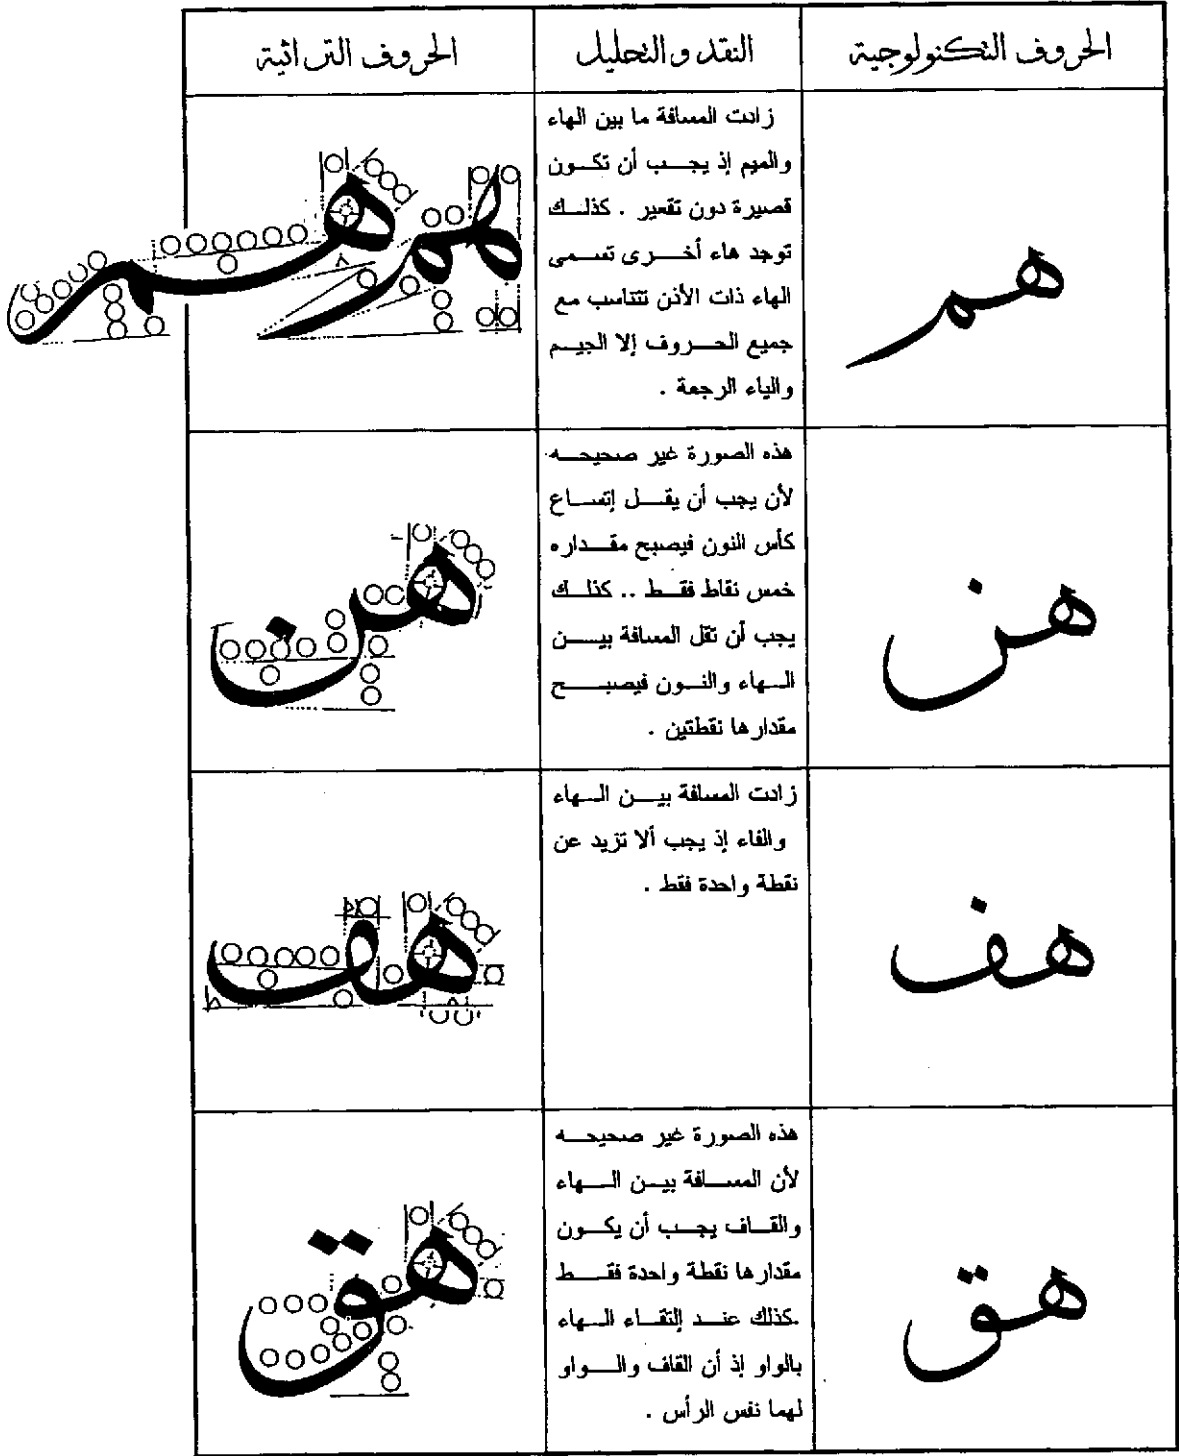 الحروف التكنولوجية
النقد والتحليل
الحروف التراثية
هم
زادت المسافة ما بين الهاء
والميم إذ يجـــب أن تكـــون
قصيرة دون تقعير . كذلـــك
توجد هاء أخـــرى تسـمى
الهاء ذات الأذن تتناسب مع
جميع الحـــروف إلا الجيـــم
والياء الرجعة .
هم هم
هن
هذه الصورة غير صحيحـــه
لأن يجب أن يقـــل إتســـاع
كأس النون فيصبح مقـــداره
خمس نقاط فقـــط .. كذلـــك
يجب أن تقل المسافة بيـــن
الـــهاء والنـــون فيصبـــح
مقدارها نقطتين .
هن
هف
زادت المسافة بيـــن الـــهاء
والفاء إذ يجب ألا تزيد عن
نقطة واحدة فقط .
هف
هق
هذه الصورة غير صحيحـــه
لأن المســـافة بيـــن الـــهاء
والقـــاف يجـــب أن يكـــون
مقدارها نقطة واحدة فقـــط
.كذلك عنـــد إلتقـــاء الـــهاء
بالواو إذ أن القاف والـــواو
لهما نفس الرأس .
هق